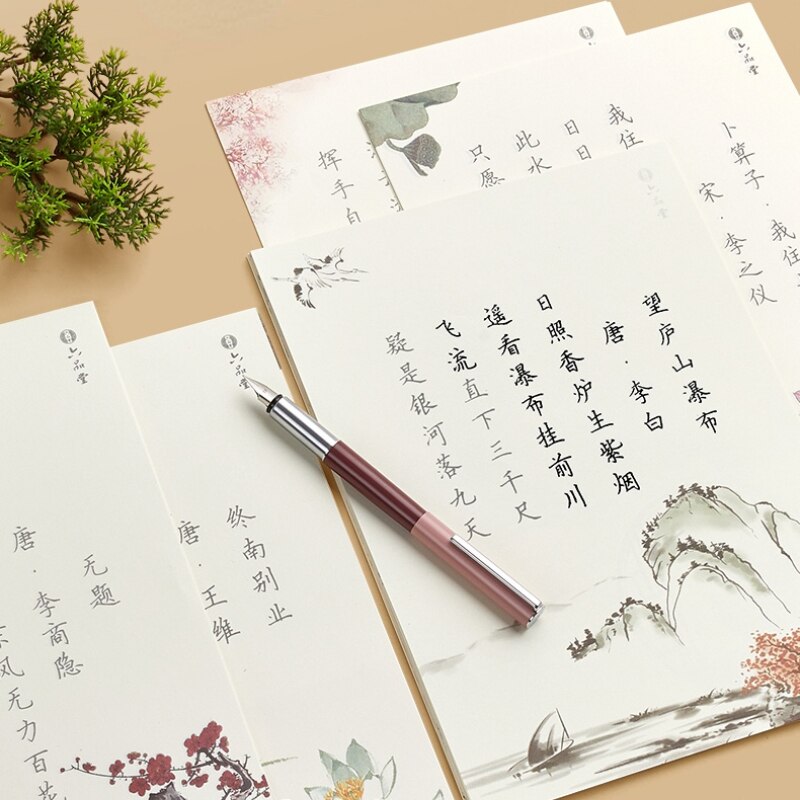 望庐山瀑布
唐·李白
日照香炉生紫烟
遥看瀑布挂前川
飞流直下三千尺
疑是银河落九天
六品堂
卜算子·我住
宋·李之仪
六品堂
我住
日日
此水
只愿
挥手自
六品堂
终南别业
唐
王维
六品堂
无题
唐·李商隐
东风无力百花
六品堂